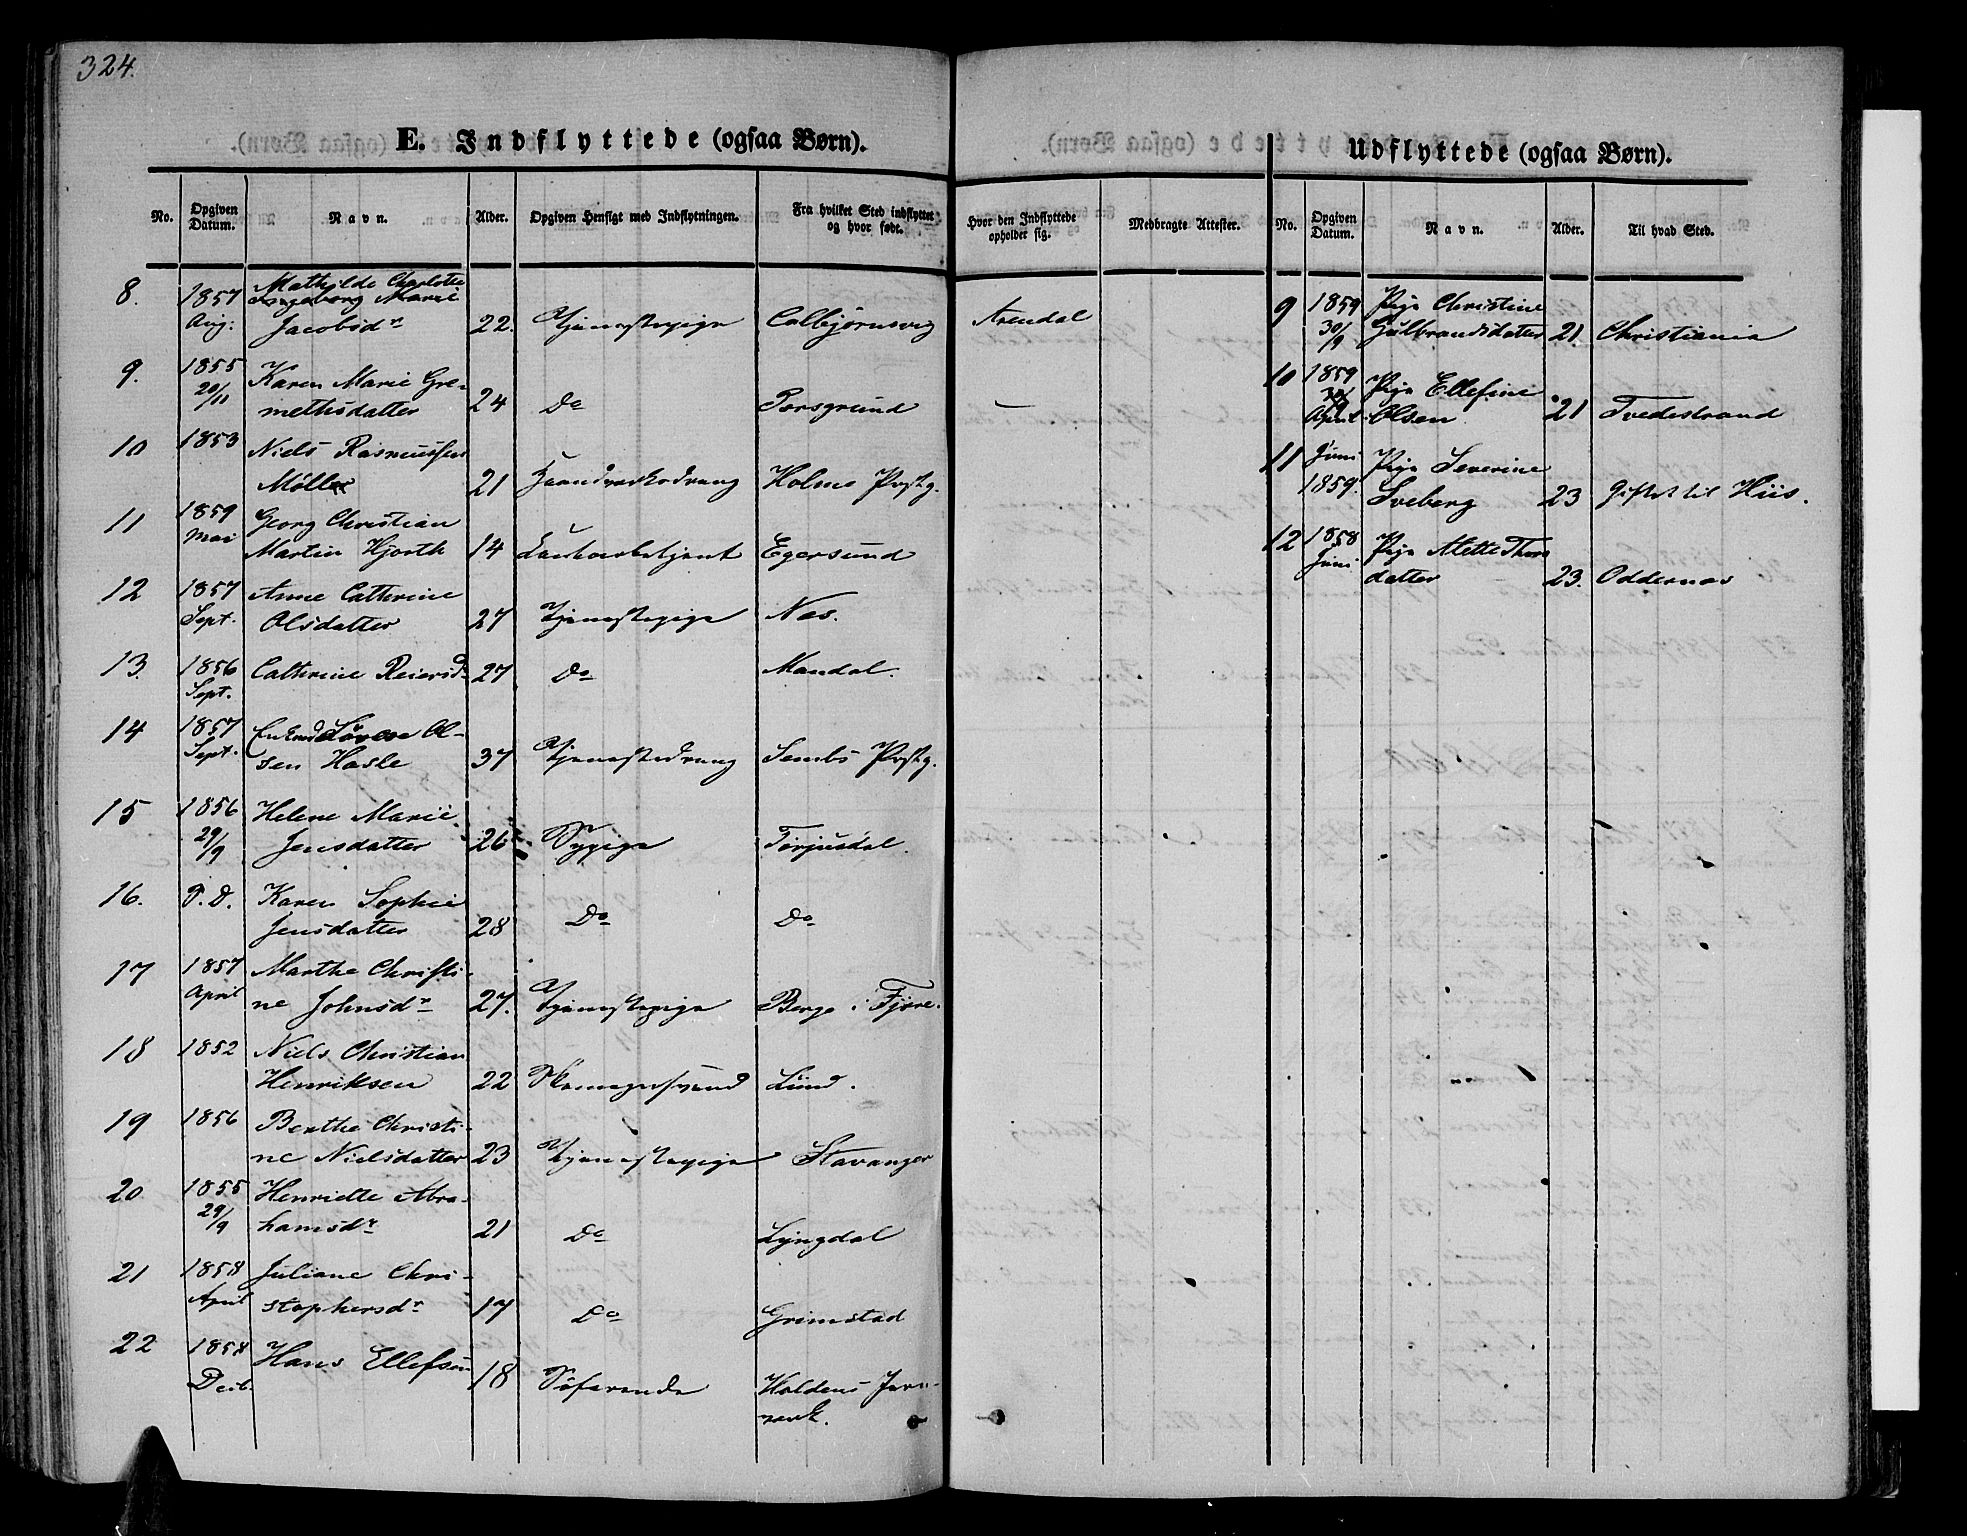 324.
E. Indflyttede (ogsaa Børn).
No. Opgiven Datum. Navn. Alder. Opgiven Hensigt med Indflytningen. Fra hvilket Sted indflyttet og hvor født. Hvor den Indflyttede opholder sig. Medbragte Attester.
8. 1857 Mathilde Charlotte
Ingeborg Marie
Aug: Jacobsdr 22. Tjenestepige Colbjørnsvig Arendal
9. 1855 Karen Marie Gre-
20/11 methsdatter 24 Do Porsgrund —
10 1853 Niels Rasmussen
Møller 21 Haandværksdreng Holme Prstg.
11 1859 Georg Christian
Mai Martin Hjorth 14 Egersund
12 1857 Anne Cathrine
Sept. Olsdatter 27 Tjenestepige Nes.
13. 1856 Cathrine Reiersd 27 Do Mandal.
Sept.
14 1857 Ol-
Sept. sen Hasle 37 Tjenestedreng Sembs Prstg.
15 1856 Helene Marie
29/9 Jensdatter 26 Sypige Torjusdal.
16. S. D. Karen Sophie
Jensdatter 28 Do Do
17 1857 Marthe Christi-
April ne Johnsdr 27. Tjenestepige Berge i Fjære.
18 1852 Niels Christian
Henriksen 22 Lund.
19 1856 Berthe Christi-
ne Nielsdatter 23 Tjenestepige Stavanger
20 1855 Henriette Abra-
29/9 hamsdr 21 Do Lyngdal
21 1858 Juliane Chri-
April stophersdr 17 Do Grimstad
22 1858 Hans Ellefsen
Decb. 18 Søfarende Holdens Jern-
værk.
Udflyttede (ogsaa Børn).
No. Opgiven Datum. Navn. Alder. Til hvad Sted.
9 1859 Pige Christine
30/9 Gulbrandsdatter 21 Christiania
10 1859 Pige Ellefine
April Olsen 21 Tvedestrand
11 Juni Pige Severine
1859. Sveberg 23 giftet til Hiis.
12 1858 Pige Alette Thors
Juni datter 23. Oddernæs